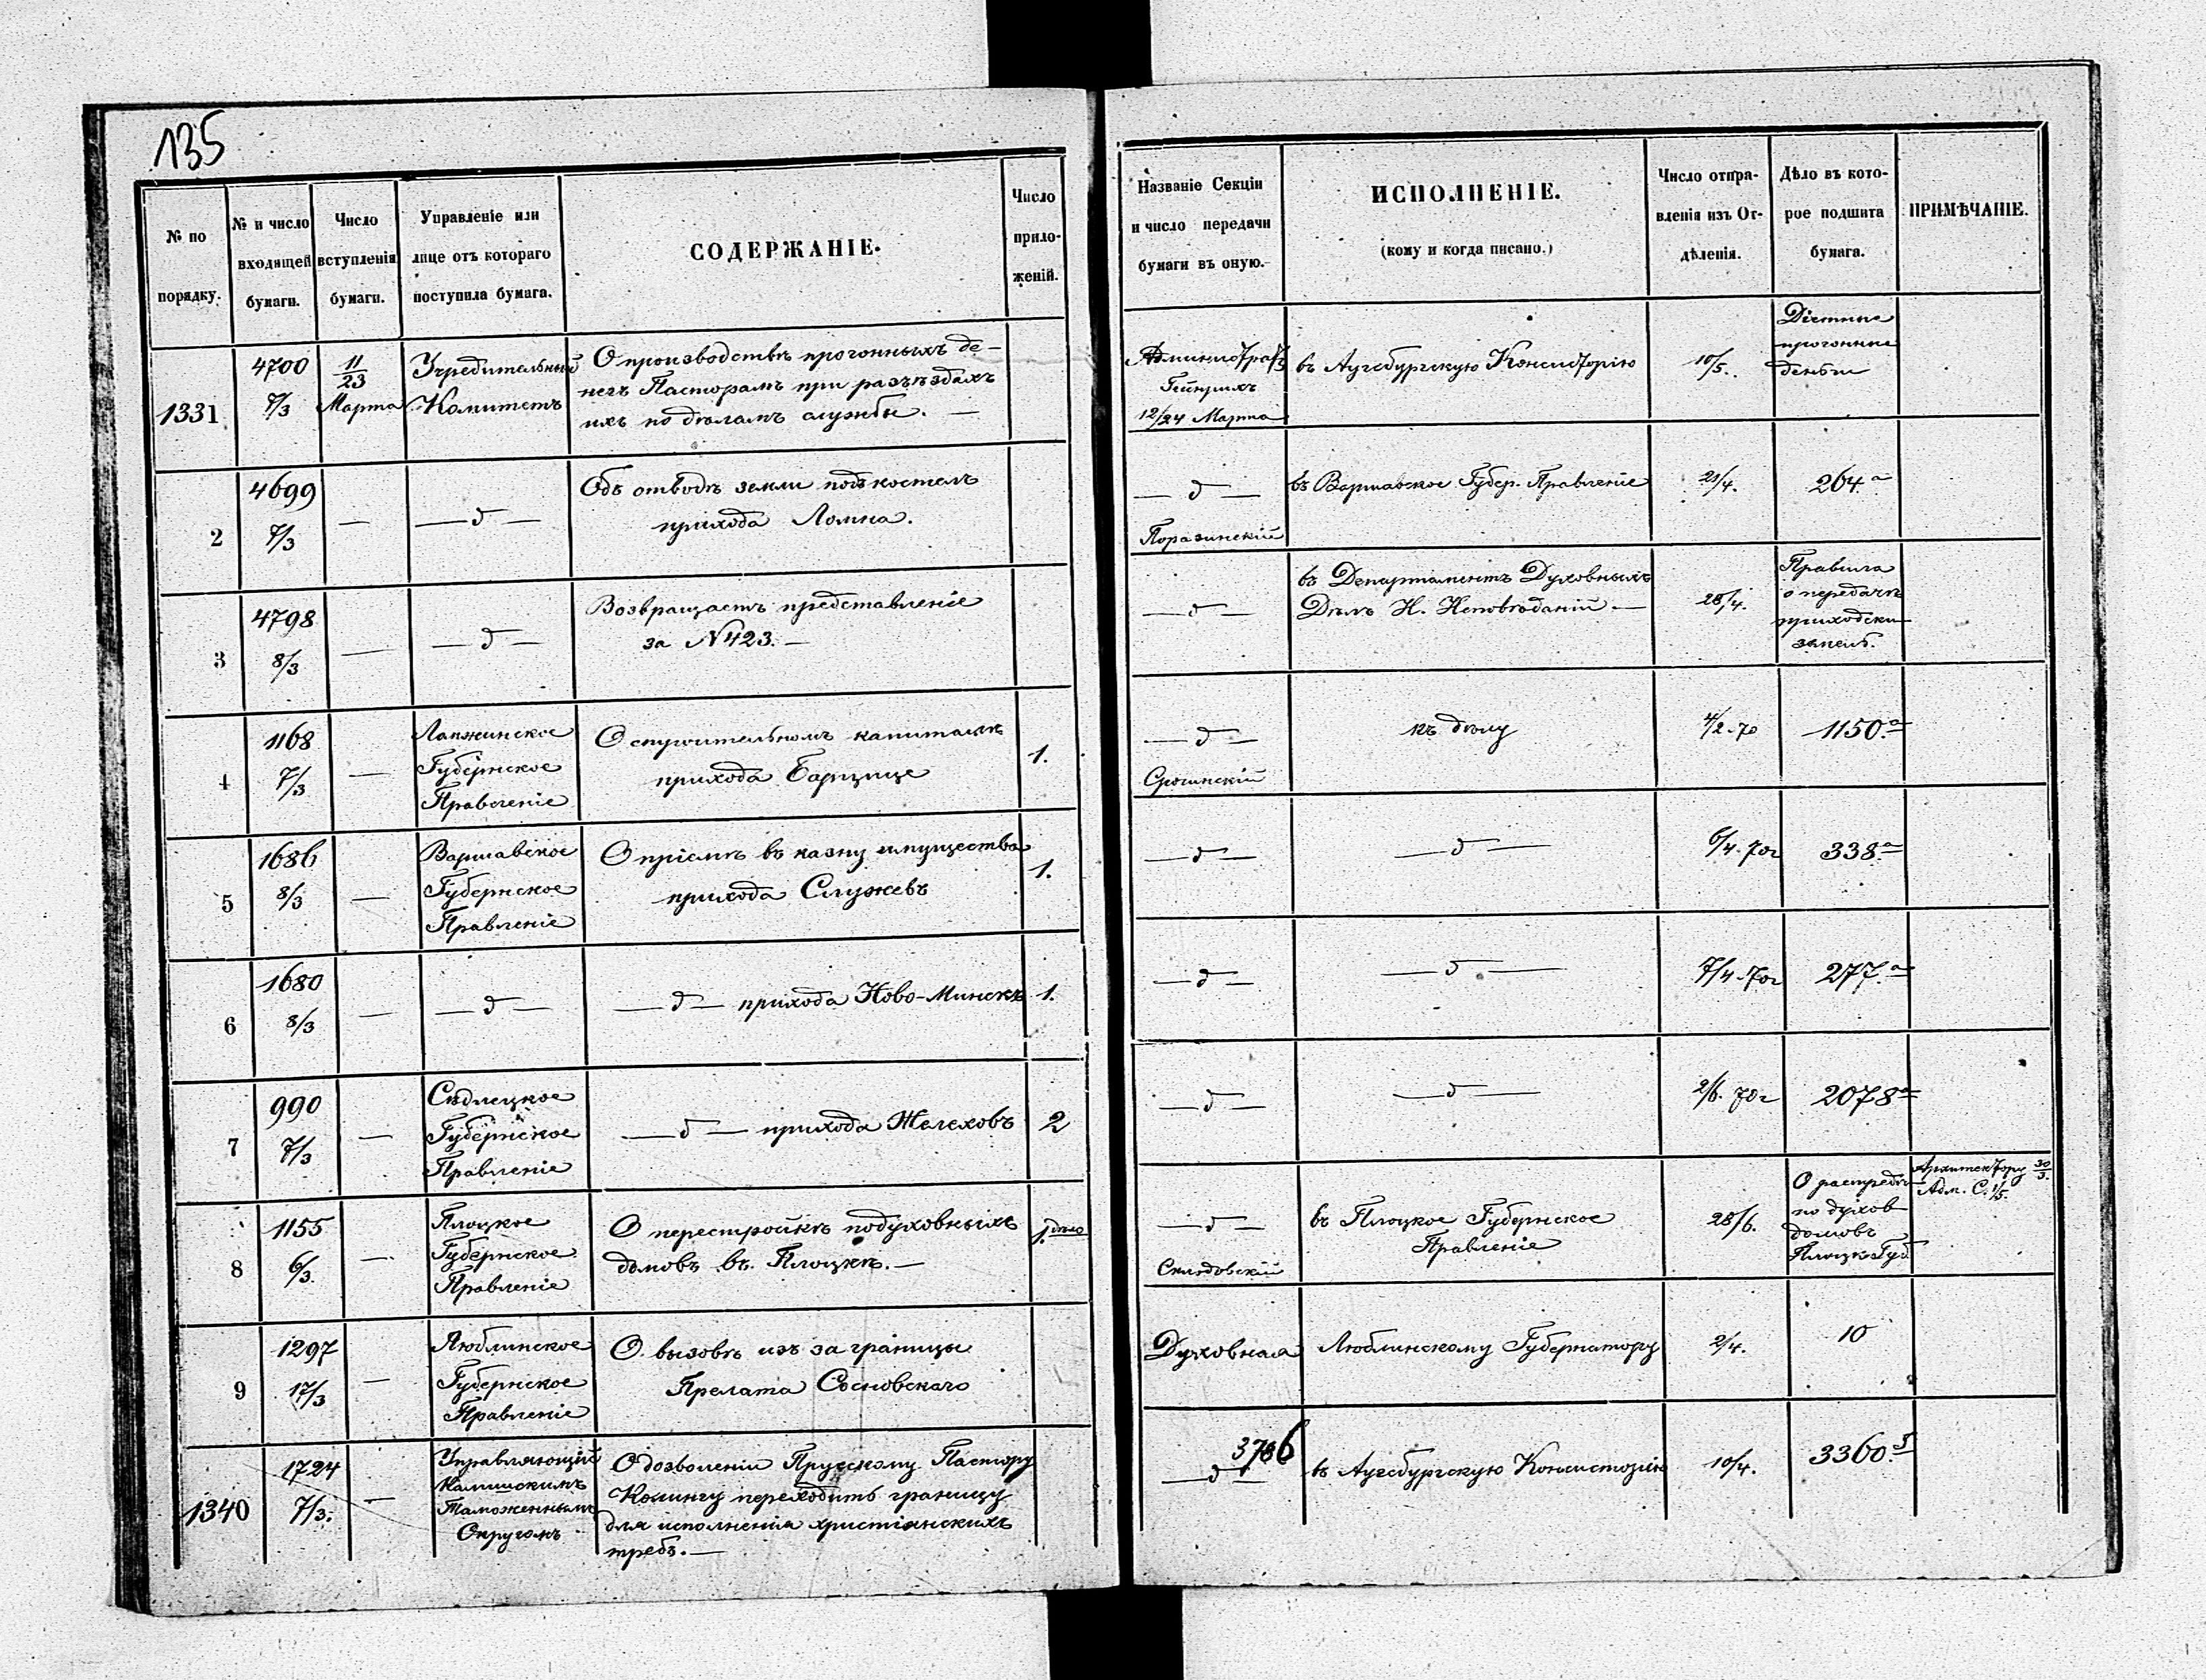 135
№ по порядку.
№ и число входящей бумаги.
Число вступленія бумаги.
Управленіе или лице отъ котораго поступила бумага.
СОДЕРЖАНІЕ.
Число приложеній.
Названіе Секціи и число передачи бумаги въ оную.
ИСПОЛНЕНІЕ.
(кому и когда писано.)
Число отправленія изъ Отдѣленія.
Дѣло въ которое подшита бумага.
ПРИМѢЧАНІЕ.
1331
4700
7/3
11/23
Марта
Учредительный
Комитетъ
О производствѣ прогонныхъ де-
негъ Пасторамъ при разъѣздахъ
ихъ по дѣламъ службы. —
12/24 Марта
въ Аугсбургскую Консисторію
10/5.
прогонные
деньги
2
4699
7/3
—
— д —
Объ отводѣ земли подъ костелъ
прихода Ломна.
— д —
въ Варшавское Губер. Правленіе
21/4.
264 а
3
4798
8/3
—
— д —
Возвращаетъ представленіе
за N 423. —
— д —
въ Департаментъ Духовныхъ
Дѣлъ И. Исповѣданій. —
28/4.
Правила
о передачѣ
приходски
земель.
4
1168
7/3
—
Ломжинское
Губернское
Правленіе
О строительномъ капиталѣ
прихода
1.
— д —
къ дѣлу
4/2 - 70
1150 а
5
1686
8/3
—
Варшавское
Губернское
Правленіе
О пріемѣ въ казну имущества
прихода Служевъ
1.
— д —
— д —
6/4 - 70 г
338 а
6
1680
8/3
—
— д —
— д — прихода Ново-Минскъ
1.
— д —
— д —
7/4 - 70 г
277 а
7
990
7/3
—
Сѣдлецкое
Губернское
Правленіе
— д — прихода Желеховъ
2
— д —
— д —
2/6. 70 г
2078 а
8
1155
6/3.
—
Плоцкое
Губернское
Правленіе
О перестройкѣ подуховныхъ
домовъ въ Плоцкѣ. —
1. дѣло
— д —
въ Плоцкое Губернское
Правленіе
28/6.
О распредѣ
по духов
домовъ
Плоцк Губ
Архитектору 30/3.
Адм. С. 1/5.
9
1297
17/3
—
Люблинское
Губернское
Правленіе
О вызовѣ изъ за границы
Прелата Сосновскаго
Духовная
Люблинскому Губернатору
2/4.
10
1340
1724
7/3.
—
Управляющій
Калишскимъ
Таможеннымъ
Округомъ
О дозволеніи Прусскому Пастору
переходить границу
для исполненія христіанскихъ
требъ. —
3786
— д —
въ Аугсбургскую Консисторію
10/4.
3360